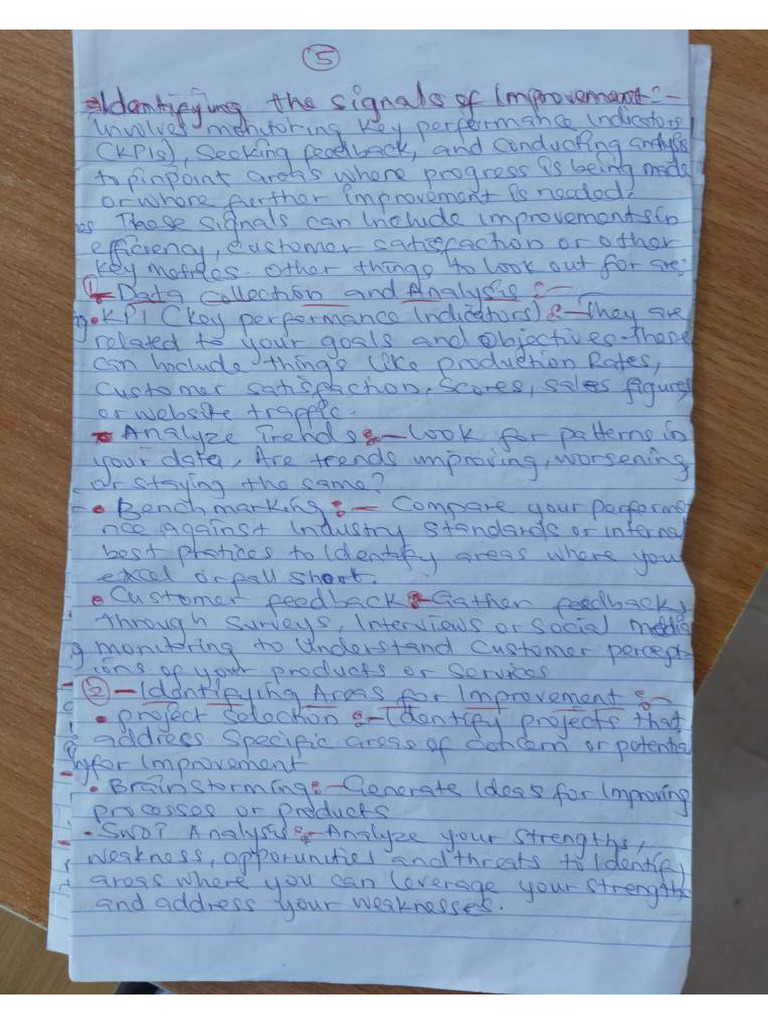 5
Identifying the signals of Improvement:-
Involves monitoring Key performance Indicators
(KPIs), Seeking feedback, and conducting analysis
to pinpoint areas where progress is being made
or where further improvement is needed.
These signals can include improvements in
efficiency, customer satisfaction or other
key metrics. Other things to look out for are:
1 - Data Collection and Analysis:-
• KPI (Key performance Indicators):- They are
related to your goals and objectives. These
can include things like production Rates,
Customer satisfaction, Scores, sales figures
or website traffic.
• Analyze Trends:- Look for patterns in
your data, Are trends improving, worsening
or staying the same?
• Benchmarking:- Compare your performa
nce against Industry standards or internal
best pratices to Identify areas where you
excel or fall short.
• Customer feedback:- Gather feedback
through surveys, Interviews or social media
monitoring to Understand Customer percept-
ions of your products or Services
2 - Identifying Areas for Improvement:-
• project Selection:- Identify projects that
address Specific areas of concern or potentia
l for Improvement
• Brainstorming:- Generate Ideas for Improving
processes or products
• SWOT Analysis:- Analyze your strengths,
weakness, opportunities and threats to Identify
areas where you can leverage your strengths
and address your weaknesses.